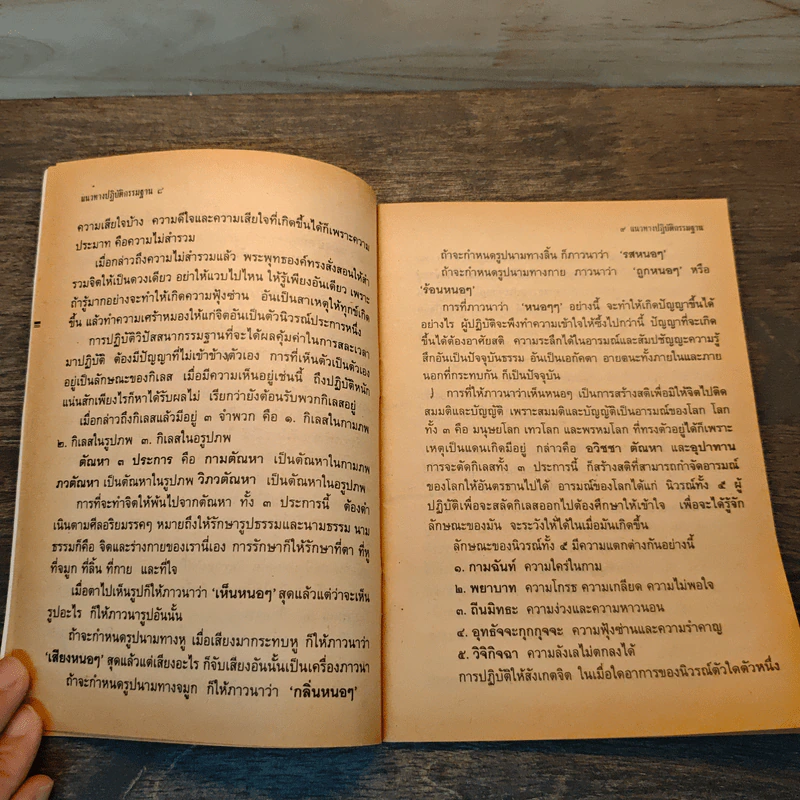 แนวทางปฏิบัติกรรมฐาน ๘
ความเสียใจบ้าง ความดีใจและความเสียใจที่เกิดขึ้นได้ก็เพราะความ
ประมาท คือความไม่สำรวม
เมื่อกล่าวถึงความไม่สำรวมแล้ว พระพุทธองค์ทรงสั่งสอนให้สำ
รวมจิตให้เป็นดวงเดียว อย่าให้แวบไปไหน ให้รู้เพียงอันเดียว เพราะ
ถ้ารู้มากอย่างจะทำให้เกิดความฟุ้งซ่าน อันเป็นสาเหตุให้ทุกข์เกิด
ขึ้น แล้วทำความเศร้าหมองให้แก่จิตอันเป็นตัวนิวรณ์ประการหนึ่ง
การปฏิบัติวิปัสสนากรรมฐานที่จะได้ผลคุ้มค่าในการสละเวลา
มาปฏิบัติ ต้องมีปัญญาที่ไม่เข้าข้างตัวเอง การที่เห็นตัวเป็นตัวเอง
อยู่เป็นลักษณะของกิเลส เมื่อมีความเห็นอยู่เช่นนี้ ถึงปฏิบัติหนัก
แน่นสักเพียงไรก็หาได้รับผลไม่ เรียกว่ายังต้อนรับพวกกิเลสอยู่
เมื่อกล่าวถึงกิเลสแล้วมีอยู่ ๓ จำพวก คือ ๑. กิเลสในกามภพ
๒. กิเลสในรูปภพ ๓. กิเลสในอรูปภพ
ตัณหา ๓ ประการ คือ กามตัณหา เป็นตัณหาในกามภพ
ภวตัณหา เป็นตัณหาในรูปภพ วิภวตัณหา เป็นตัณหาในอรูปภพ
การที่จะทำจิตให้พ้นไปจากตัณหา ทั้ง ๓ ประการนี้ ต้องดำ
เนินตามศีลอริยมรรคๆ หมายถึงให้รักษารูปธรรมและนามธรรม นาม
ธรรมก็คือ จิตและร่างกายของเรานี่เอง การรักษาก็ให้รักษาที่ตา ที่หู
ที่จมูก ที่ลิ้น ที่กาย และที่ใจ
เมื่อตาไปเห็นรูปก็ให้ภาวนาว่า 'เห็นหนอๆ' สุดแล้วแต่ว่าจะเห็น
รูปอะไร ก็ให้ภาวนารูปอันนั้น
ถ้าจะกำหนดรูปนามทางหู เมื่อเสียงมากระทบหู ก็ให้ภาวนาว่า
'เสียงหนอๆ' สุดแล้วแต่เสียงอะไร ก็จับเสียงอันนั้นเป็นเครื่องภาวนา
ถ้าจะกำหนดรูปนามทางจมูก ก็ให้ภาวนาว่า 'กลิ่นหนอๆ'
๙ แนวทางปฏิบัติกรรมฐาน
ถ้าจะกำหนดรูปนามทางลิ้น ก็ภาวนาว่า 'รสหนอๆ'
ถ้าจะกำหนดรูปนามทางกาย ภาวนาว่า 'ถูกหนอๆ' หรือ
'ร้อนหนอๆ'
การที่ภาวนาว่า 'หนอๆๆ' อย่างนี้ จะทำให้เกิดปัญญาขึ้นได้
อย่างไร ผู้ปฏิบัติจะพึงทำความเข้าใจให้ซึ้งไปกว่านี้ ปัญญาที่จะเกิด
ขึ้นได้ต้องอาศัยสติ ความระลึกได้ในอารมณ์และสัมปชัญญะความรู้
สึกอันเป็นปัจจุบันธรรม อันเป็นเอกัคตา อายตนะทั้งภายในและภาย
นอกที่กระทบกัน ก็เป็นปัจจุบัน
การที่ให้ภาวนาว่าเห็นหนอๆ เป็นการสร้างสติเพื่อมิให้จิตไปติด
สมมติและบัญญัติ เพราะสมมติและบัญญัติเป็นอารมณ์ของโลก โลก
ทั้ง ๓ คือ มนุษยโลก เทวโลก และพรหมโลก ที่ทรงตัวอยู่ได้ก็เพราะ
เหตุเป็นแดนเกิดมีอยู่ กล่าวคือ อวิชชา ตัณหา และอุปาทาน
การจะตัดกิเลสทั้ง ๓ ประการนี้ ก็สร้างสติที่สามารถกำจัดอารมณ์
ของโลกให้อันตรธานไปได้ อารมณ์ของโลกได้แก่ นิวรณ์ทั้ง ๕ ผู้
ปฏิบัติเพื่อจะสลัดกิเลสออกไปต้องศึกษาให้เข้าใจ เพื่อจะได้รู้จัก
ลักษณะของมัน จะระวังให้ได้ในเมื่อมันเกิดขึ้น
ลักษณะของนิวรณ์ทั้ง ๕ มีความแตกต่างกันอย่างนี้
๑. กามฉันท์ ความใคร่ในกาม
๒. พยาบาท ความโกรธ ความเกลียด ความไม่พอใจ
๓. ถีนมิทธะ ความง่วงและความหาวนอน
๔. อุทธัจจะกุกกุจจะ ความฟุ้งซ่านและความรำคาญ
๕. วิจิกิจฉา ความลังเลไม่ตกลงได้
การปฏิบัติให้สังเกตจิต ในเมื่อใดอาการของนิวรณ์ตัวใดตัวหนึ่ง